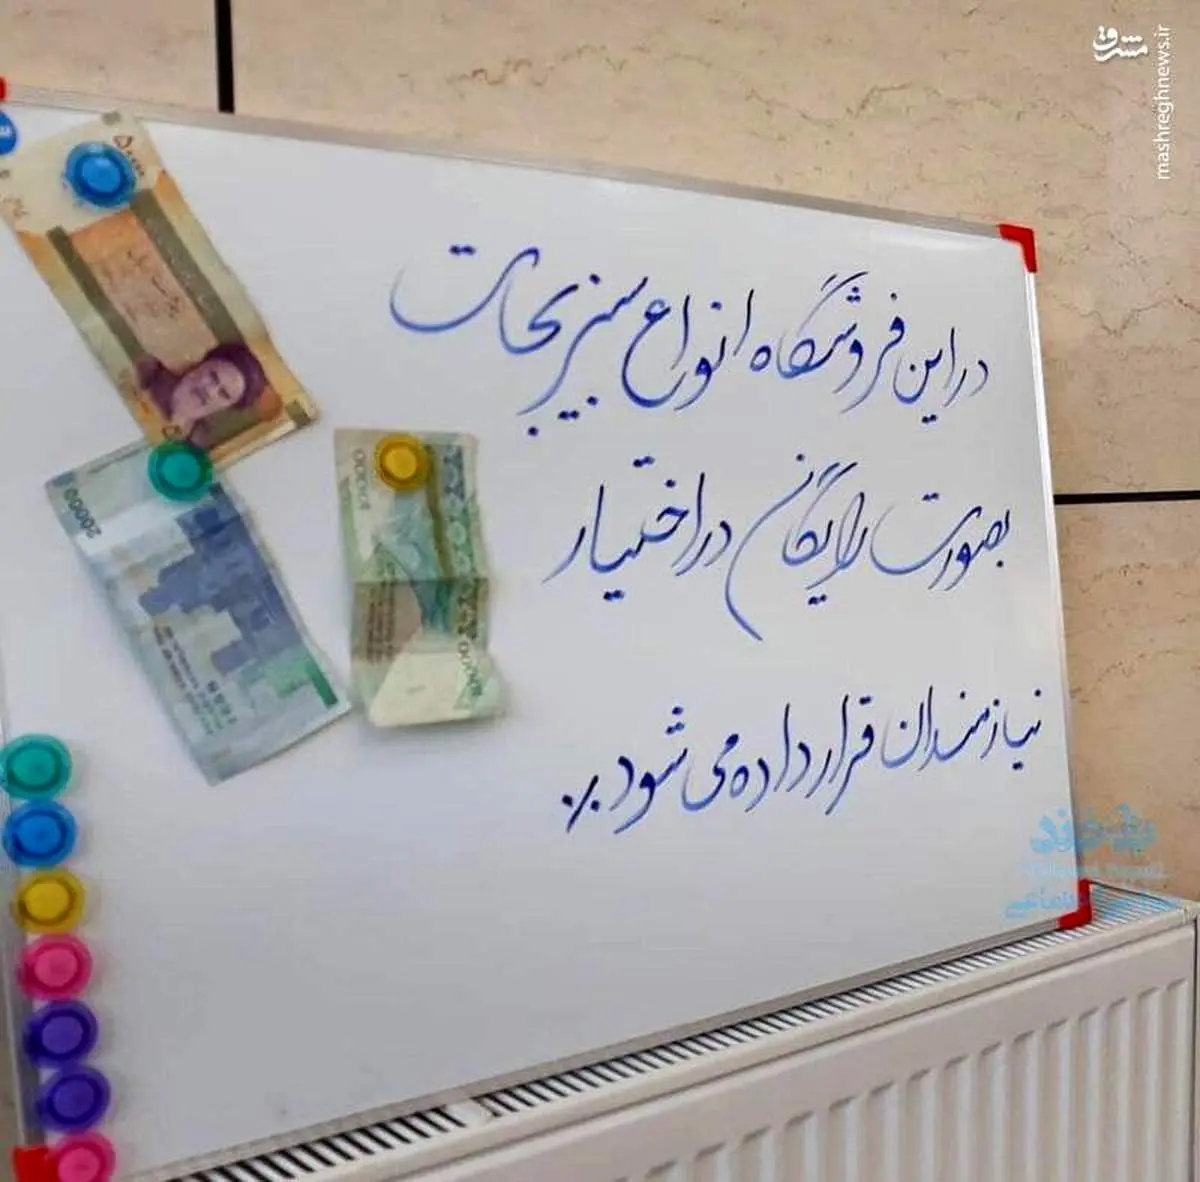 مشرق
mashreghnews.ir
در این فروشگاه انواع سبزیجات
بصورت رایگان در اختیار
نیازمندان قرار داده می شود.
20000